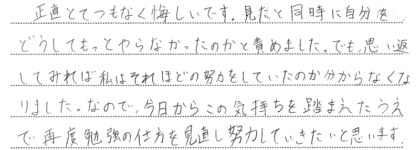 正直とてつもなく悔しいです。見たと同時に自分を
どうしてもっとやらなかったのかと責めました。でも、思い返
してみれば私はそれほどの努力をしていたのか分からなくな
りました。なので、今日からこの気持ちを踏まえたうえ
で再度勉強の仕方を見直し努力していきたいと思います。